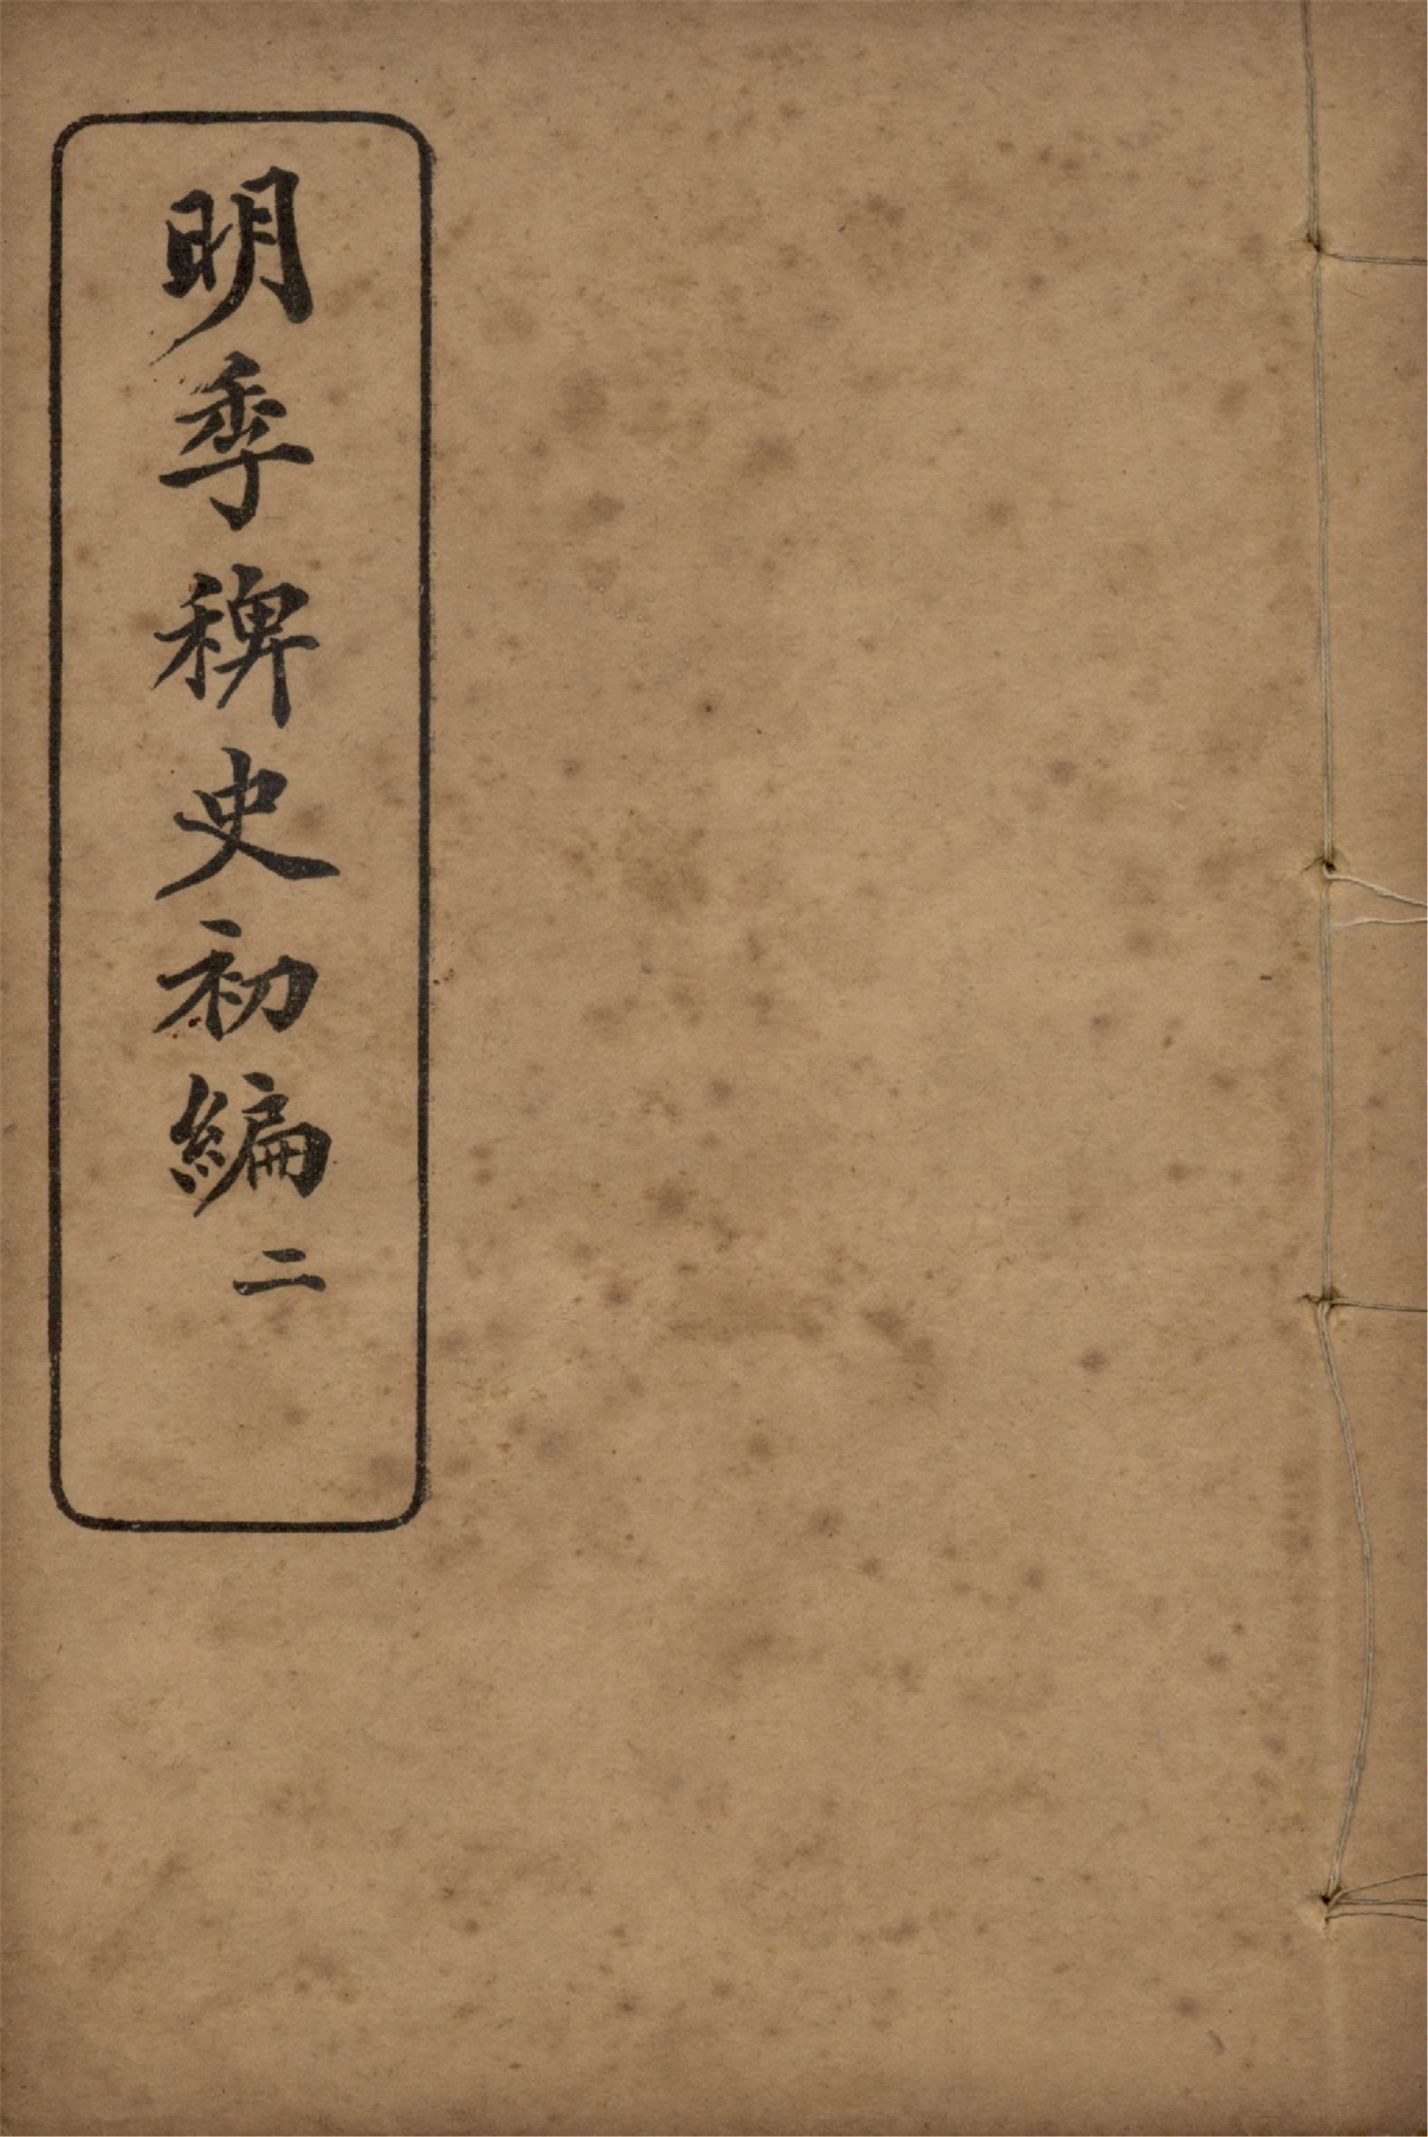 明季稗史初編 二